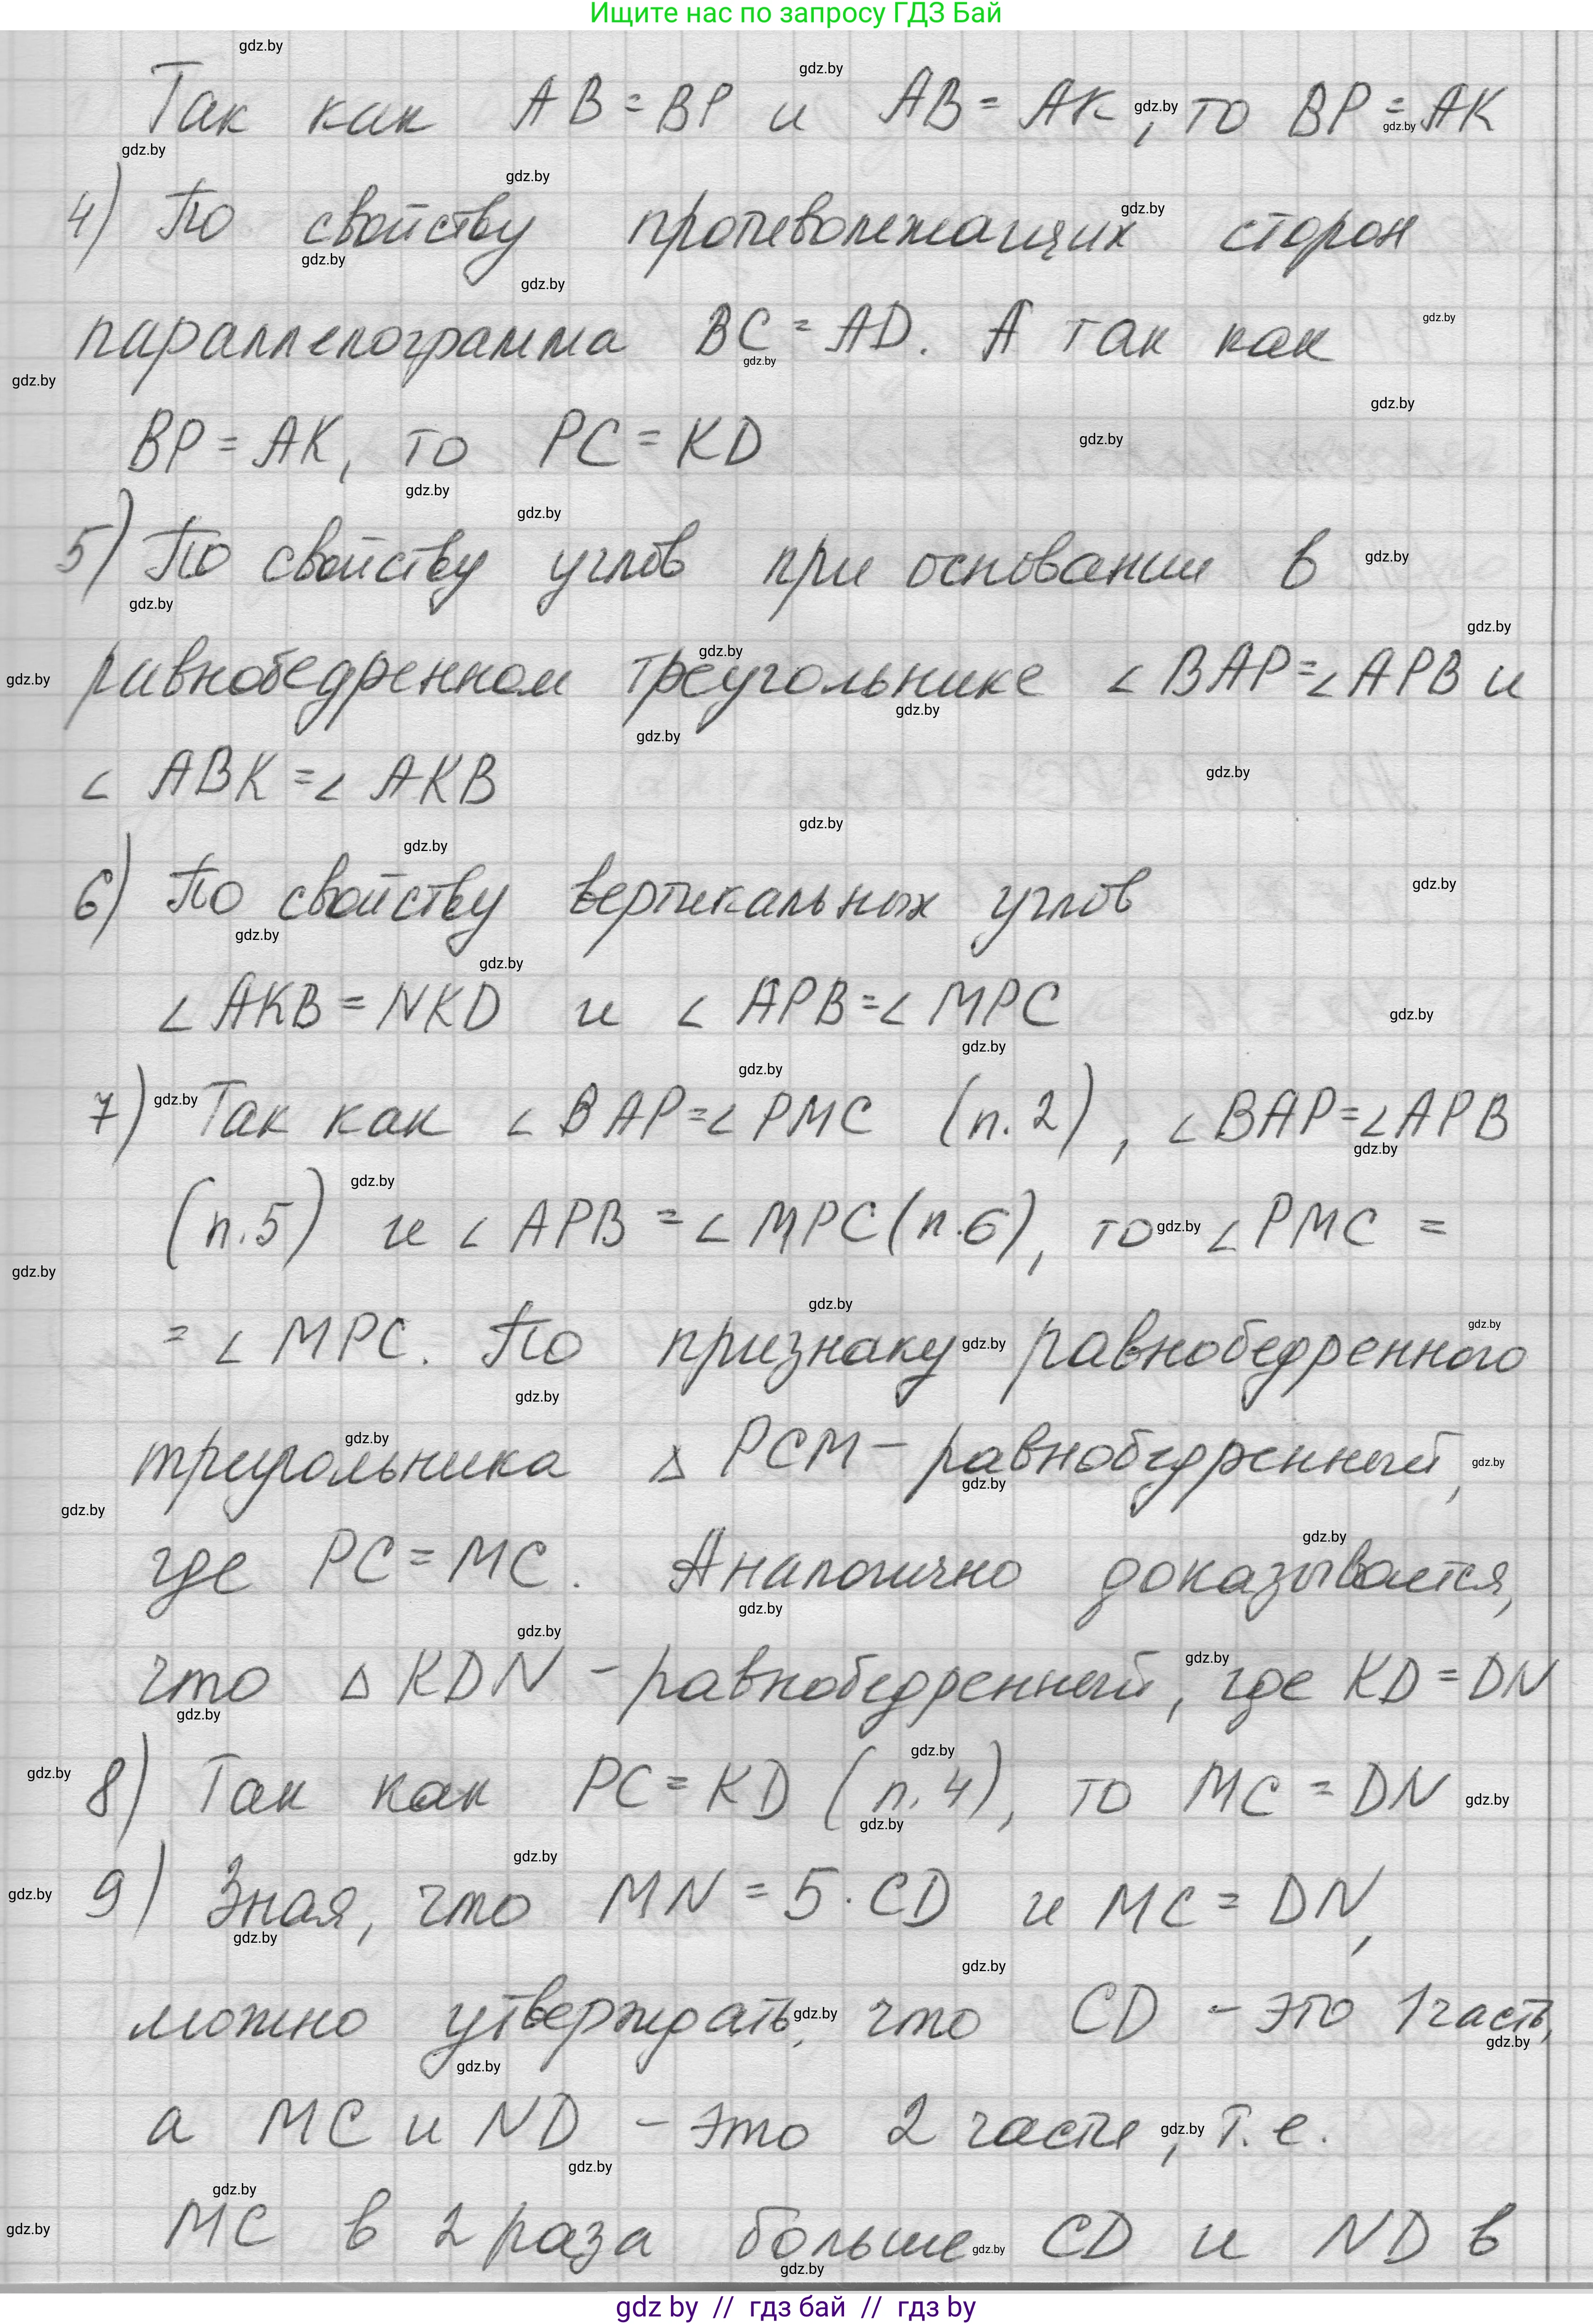 Ищите нас по запросу ГДЗ Бай
Так как AB = BP и AB = AK, то BP = AK
4) По свойству противолежащих сторон
параллелограмма BC = AD. А так как
BP = AK, то PC = KD
5) По свойству углов при основании в
равнобедренном треугольнике ∠BAP = ∠APB и
∠ABK = ∠AKB
6) По свойству вертикальных углов
∠AKB = NKD и ∠APB = ∠MPC
7) Так как ∠BAP = ∠PMC (п.2), ∠BAP = ∠APB
(п.5) и ∠APB = ∠MPC (п.6), то ∠PMC =
= ∠MPC. По признаку равнобедренного
треугольника △PCM – равнобедренный,
где PC = MC. Аналогично доказывается,
что △KDN – равнобедренный, где KD = DN
8) Так как PC = KD (п.4), то MC = DN
9) Зная, что MN = 5·CD и MC = DN,
можно утверждать, что CD – это 1 часть,
а MC и ND – это 2 части, т.е.
MC в 2 раза больше CD и ND в
gdz by // гдз бай // гдз by